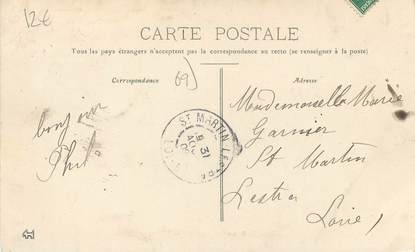 12€
CARTE POSTALE
Tous les pays étrangers n'acceptent pas la correspondance au recto (se renseigner à la poste)
Correspondance
69
Adresse
bonjour
Mademoiselle Marie
Garnier
St Martin
Lestra
Loire
ST MARTIN LESTRA
31
LOIRE